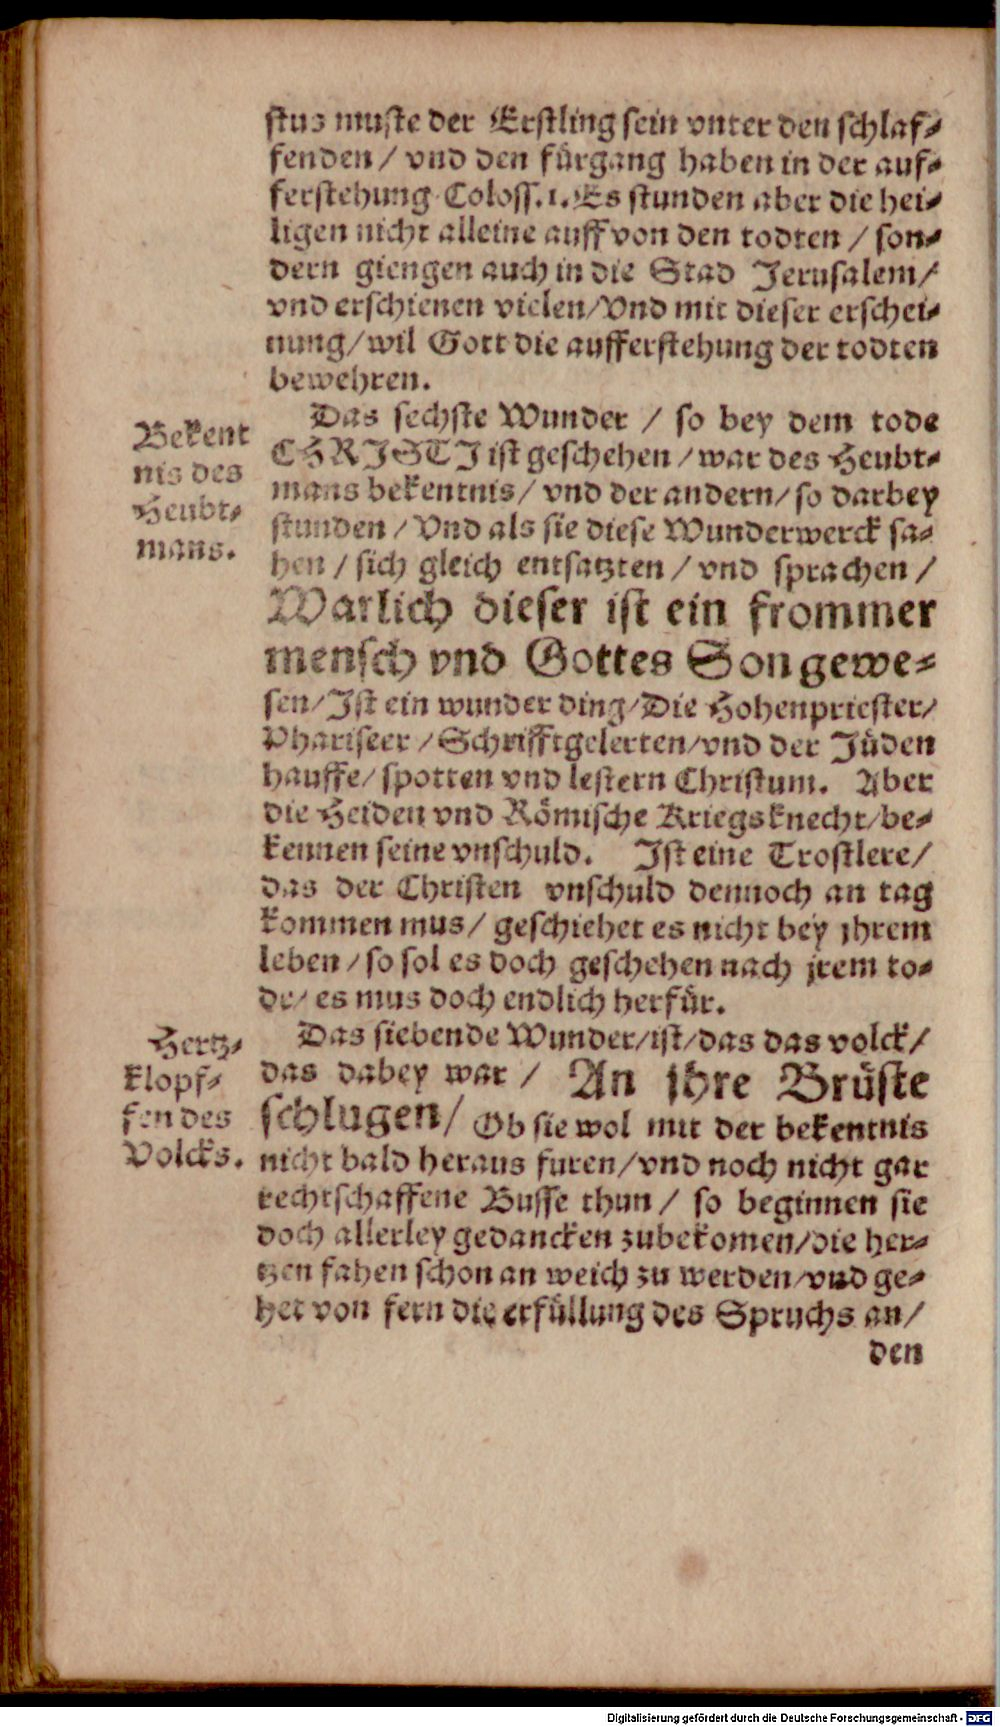 stus muste der Erstling sein vnter den schlaf-
fenden / vnd den fürgang haben in der auf-
ferstehung Coloss. 1. Es stunden aber die hei-
ligen nicht alleine auff von den todten / son-
dern giengen auch in die Stad Jerusalem /
vnd erschienen vielen / Vnd mit dieser erschei-
nung / wil Gott die aufferstehung der todten
bewehren.
Das sechste Wunder / so bey dem tode
CHRISTI ist geschehen / war des Heubt-
mans bekentnis / vnd der andern / so darbey
stunden / Vnd als sie diese Wunderwerck sa-
hen / sich gleich entsatzten / vnd sprachen /
Warlich dieser ist ein frommer
mensch vnd Gottes Son gewe-
sen / Ist ein wunder ding / Die Hohenpriester /
Phariseer / Schrifftgelerten / vnd der Jüden
hauffe / spotten vnd lestern Christum. Aber
die Heiden vnd Römische Kriegsknecht / be-
kennen seine vnschuld. Ist eine Trostlere /
das der Christen vnschuld dennoch an tag
kommen mus / geschiehet es nicht bey jhrem
leben / so sol es doch geschehen nach jrem to-
de / es mus doch endlich herfür.
Das siebende Wunder / ist / das das volck /
das dabey war / An jhre Brüste
schlugen / Ob sie wol mit der bekentnis
nicht bald heraus furen / vnd noch nicht gar
rechtschaffene Busse thun / so beginnen sie
doch allerley gedancken zubekomen / die her-
tzen fahen schon an weich zu werden / vnd ge-
het von fern die erfüllung des Spruchs an /
den
Bekent
nis des
Heubt-
mans.
Hertz-
klopf-
fen des
Volcks.
Digitalisierung gefördert durch die Deutsche Forschungsgemeinschaft - DFG